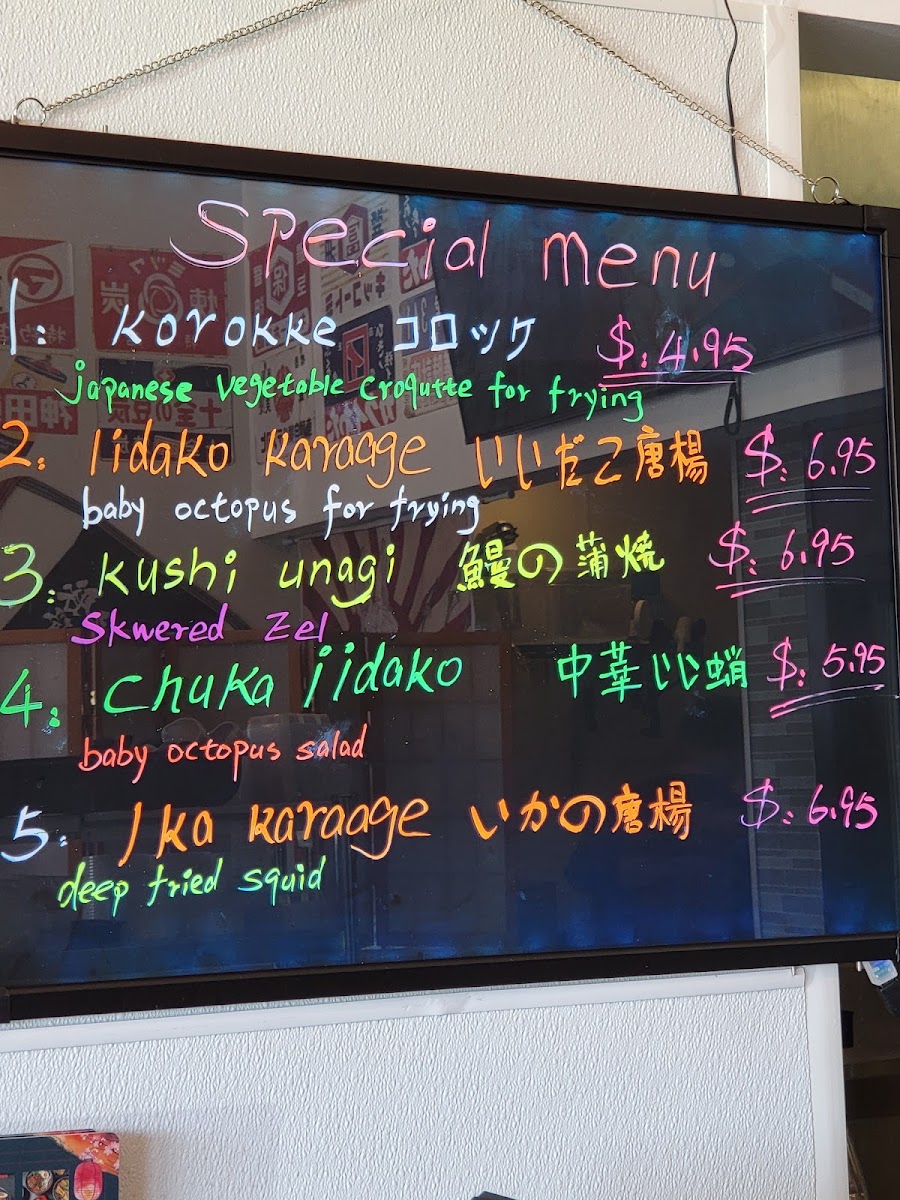 Special menu
1: Korokke コロッケ $:4.95
japanese vegetable croqutte for frying
2: Iidako karaage いいだこ唐楊 $:6.95
baby octopus for frying
3: Kushi unagi 鰻の蒲焼 $:6.95
Skwered Zel
4: Chuka iidako 中華いい蛸 $:5.95
baby octopus salad
5: Ika karaage いかの唐楊 $:6.95
deep fried squid